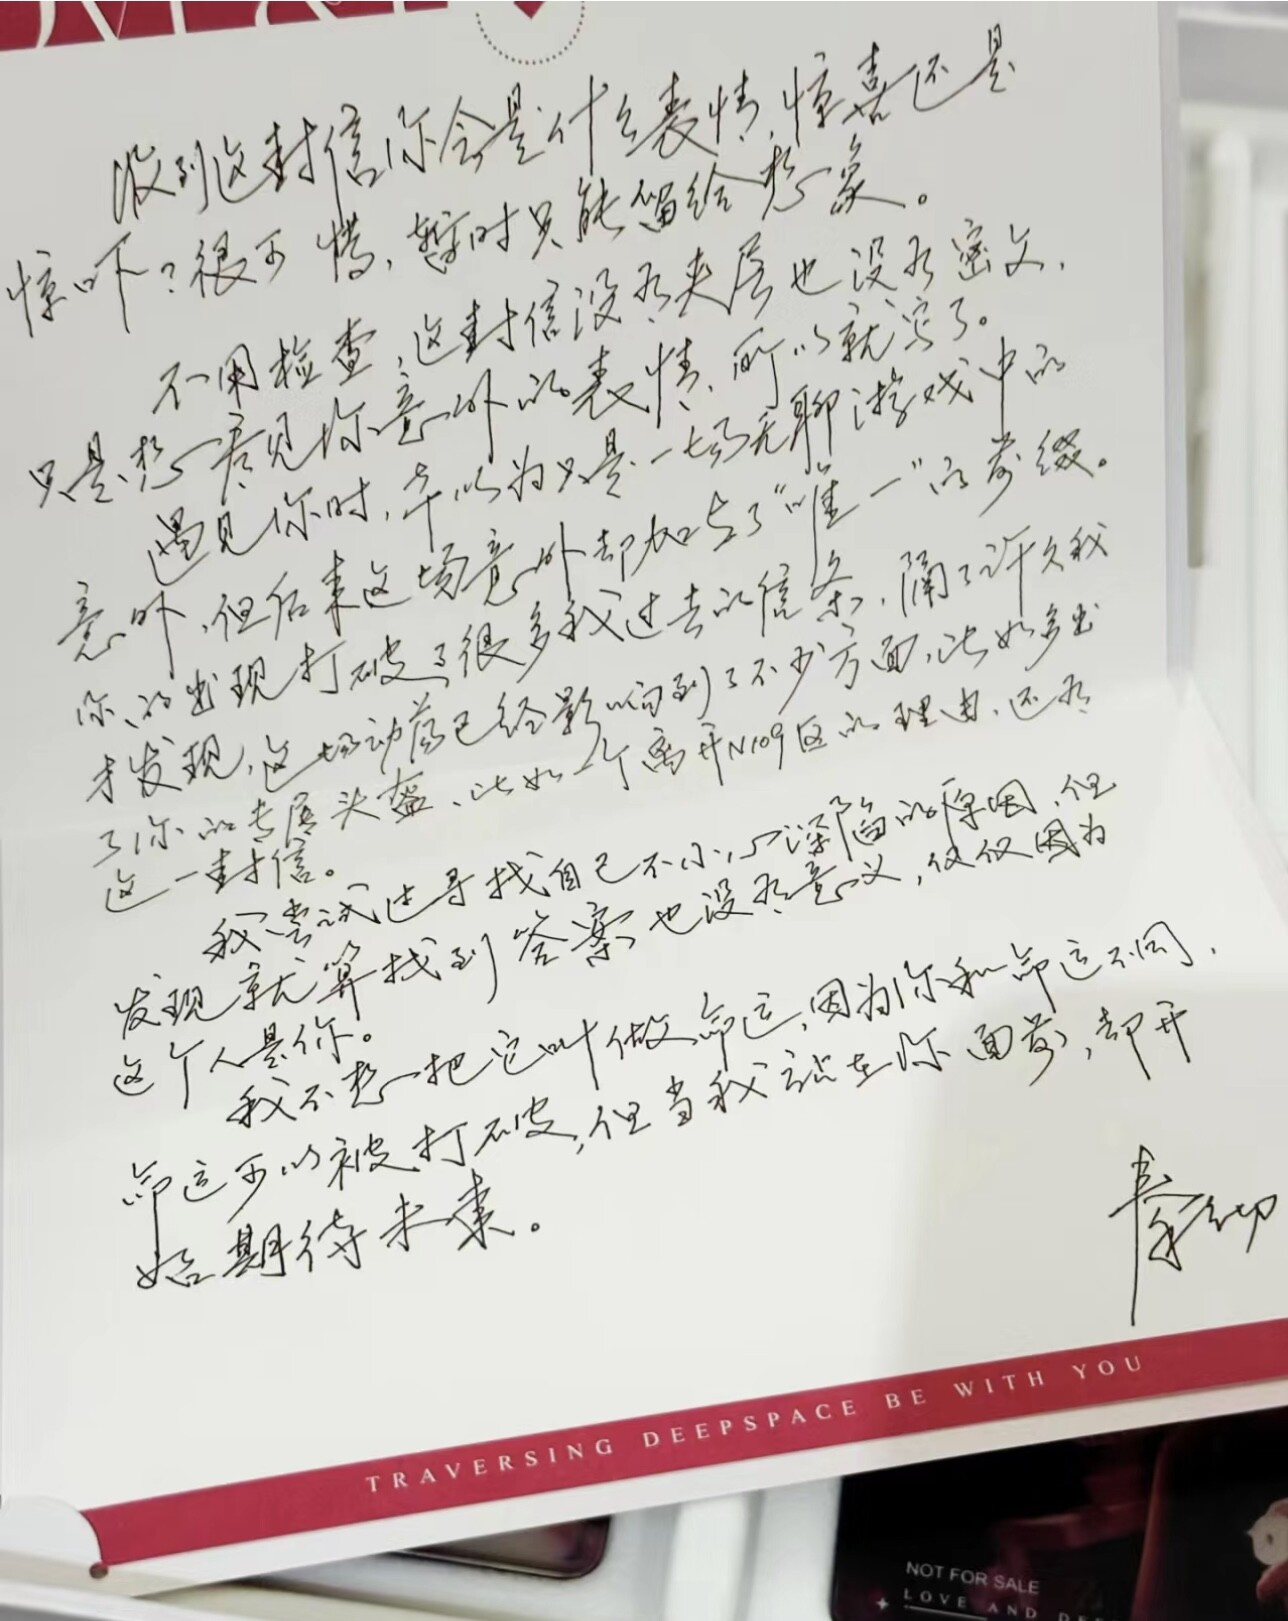 收到这封信你会是什么表情，惊喜还是
惊吓？很可惜，暂时只能留给想象。
不用检查，这封信没有夹层也没有密文，
只是想看见你意外的表情，所以就写了。
遇见你时，本以为只是一场无聊游戏中的
意外，但后来这场意外却加上了“唯一”的前缀。
你的出现打破了很多我过去的信条，隔了许久我
才发现，这场动荡已经影响到了不少方面，比如多出
了你的专属头盔、比如一个离开N109区的理由，还有
这一封信。
我尝试过寻找自己不小心深陷的原因，但
发现就算找到答案也没有意义，仅仅因为
这个人是你。
我不想把它叫做命运，因为你和命运不同，
命运可以被打破，但当我站在你面前，却开
始期待未来。
秦彻
TRAVERSING DEEPSPACE BE WITH YOU
NOT FOR SALE
LOVE AND DE